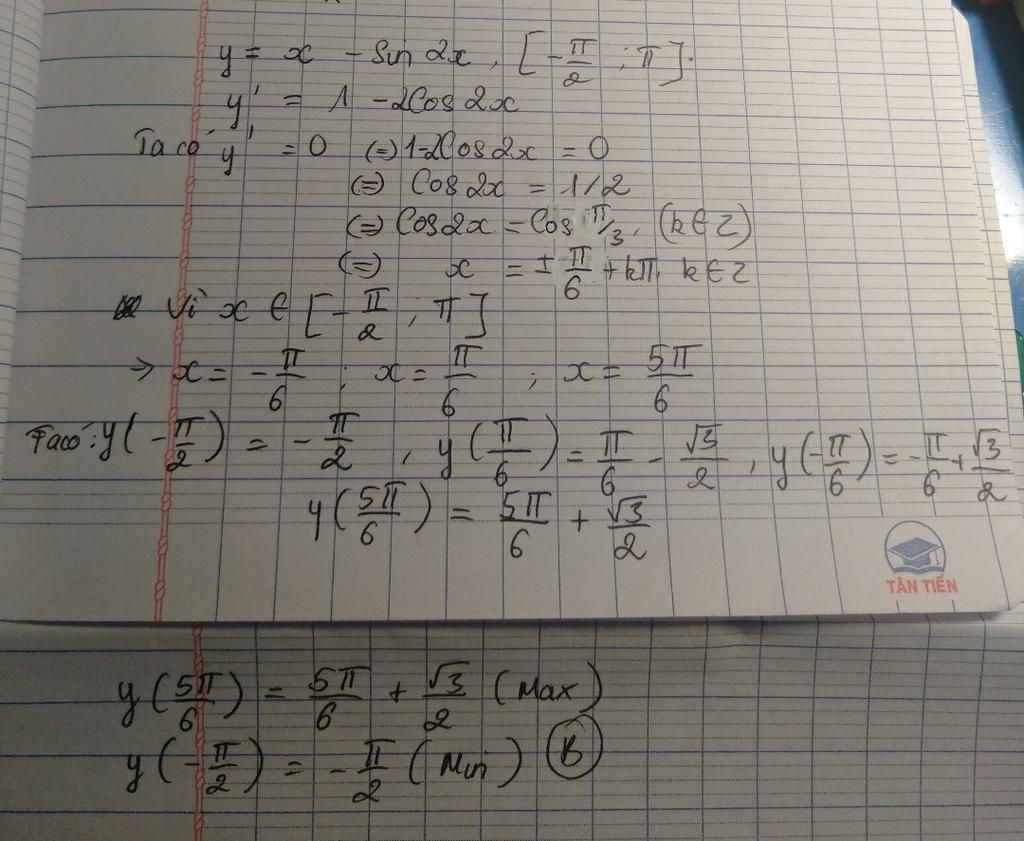 y = x - Sin 2x, [-π/2 ; π].
y' = 1 - 2Cos 2x
Ta có y' = 0 (=) 1-2Cos 2x = 0
(=) Cos 2x = 1/2
(=) Cos 2x = Cos π/3, (k ∈ Z)
(=) x = ± π/6 + kπ, k ∈ Z
Vì x ∈ [-π/2 ; π]
→ x = -π/6 ; x = π/6 ; x = 5π/6
Ta có: y(-π/2) = -π/2, y(π/6) = π/6 - √3/2, y(-π/6) = -π/6 + √3/2
y(5π/6) = 5π/6 + √3/2
TÂN TIẾN
y(5π/6) = 5π/6 + √3/2 (Max)
y(-π/2) = -π/2 (Min) B